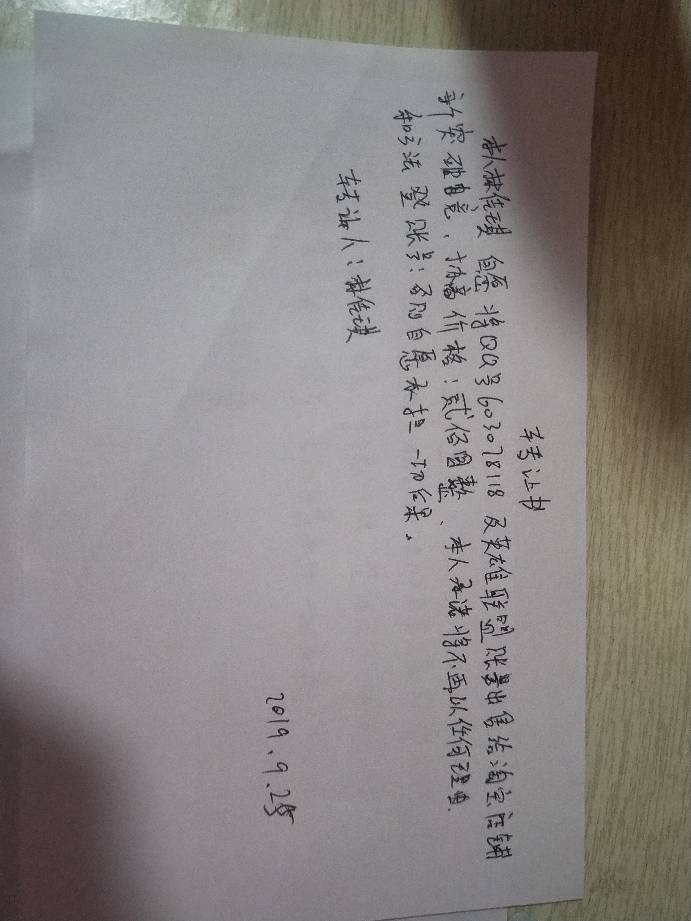 转让书
本人林佳琪 自愿 将QQ号603078118 及英雄联盟账号出售给淘宝店铺
新突破电竞、协商价格:贰佰圆整、本人承诺将不再以任何理由
和方法登账号:否则自愿承担一切后果。
转让人:林佳琪
2019.9.25